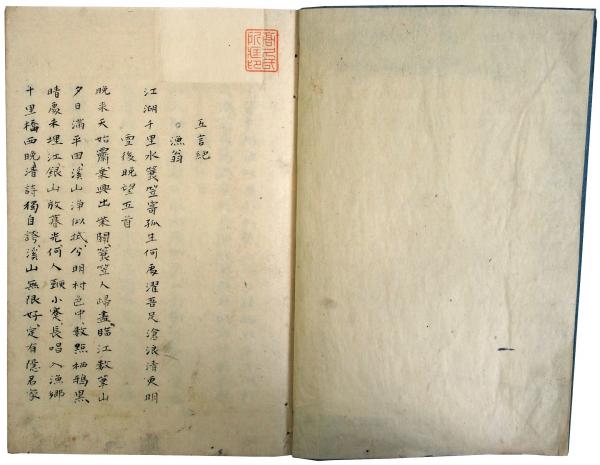 五言絶
○漁翁
江湖千里水簑笠寄孤生何處濯吾足滄浪清更明
雪後晩望五首
晩来天始霽乗興出柴關簑笠人帰盡臨江数筆山
夕日満平田溪山浄似拭分明村邑中数點栖鴉黒
晴處未埋江銀山放暮光何人小蹇長唱入漁郷
千里橋西晩清詩獨自誇溪山無限好定有隠君家